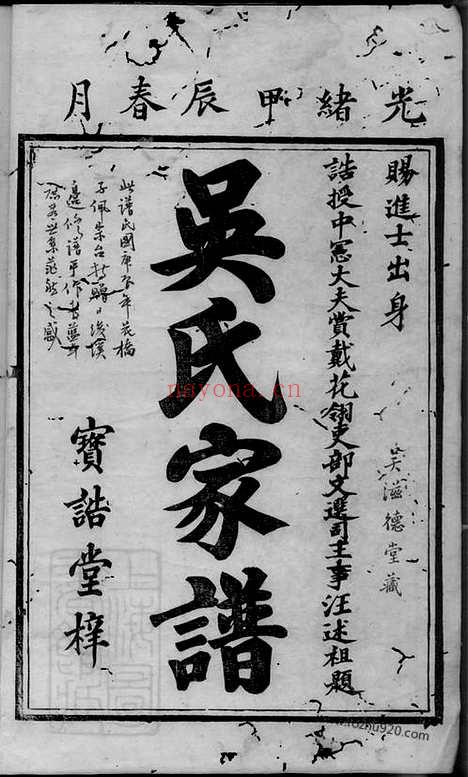 光緒甲辰春月
賜進士出身
誥授中憲大夫賞戴花翎吏部文選司主事汪述祖題
吳溢德堂藏
吳氏家譜
寶誥堂梓
此譜民國庚辰年花橋
nayona.cn
www.fozhu920.com